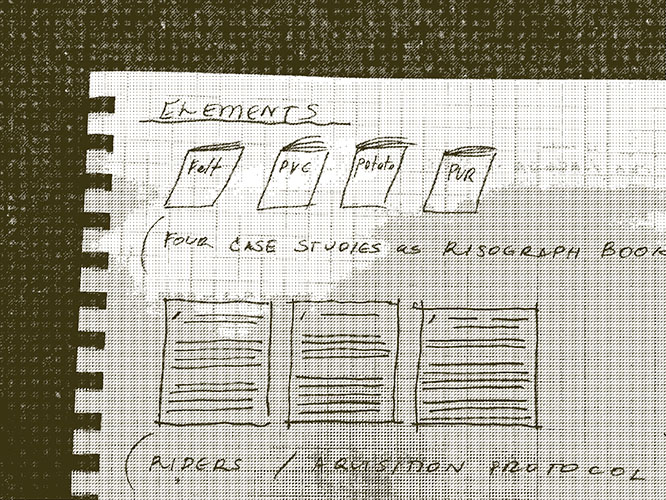 ELEMENTS
Felt PVC potato PUR
FOUR CASE STUDIES as RISOGRAPH BOOK
RIDERS / AQUISITION PROTOCOL